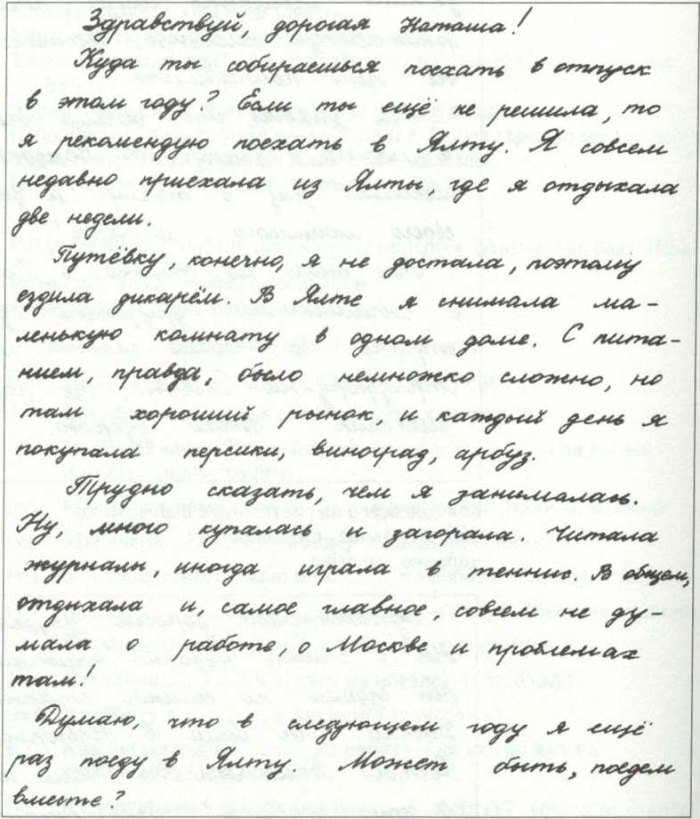 Здравствуй, дорогая Наташа!
Куда ты собираешься поехать в отпуск
в этом году? Если ты ещё не решила, то
я рекомендую поехать в Ялту. Я совсем
недавно приехала из Ялты, где я отдыхала
две недели.
Путёвку, конечно, я не достала, поэтому
ездила дикарём. В Ялте я снимала ма-
ленькую комнату в одном доме. С пита-
нием, правда, было немножко сложно, но
там хороший рынок, и каждый день я
покупала персики, виноград, арбуз.
Трудно сказать, чем я занималась.
Ну, много купалась и загорала. Читала
журналы, иногда играла в теннис. В общем,
отдыхала и, самое главное, совсем не ду-
мала о работе, о Москве и проблемах
там.
Думаю, что в следующем году я ещё
раз поеду в Ялту. Может быть, поедем
вместе?